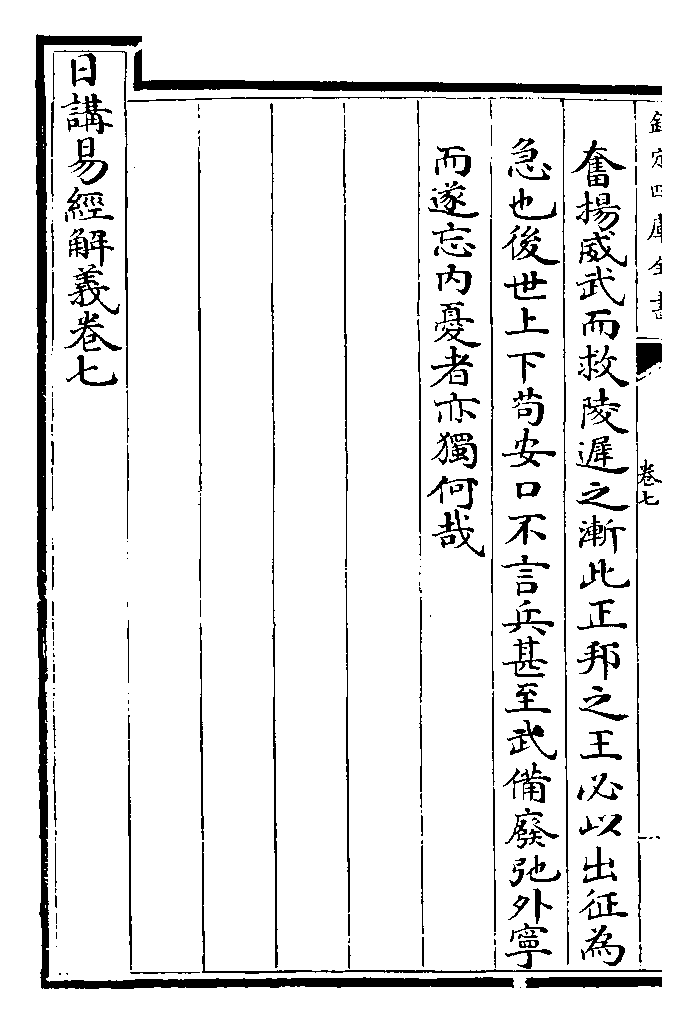 欽定四庫全書
卷七
奮揚威武而救陵遲之漸此正邦之王必以出征為
急也後世上下苟安口不言兵甚至武備廢弛外寧
而遂忘内憂者亦獨何哉
日講易經解義卷七